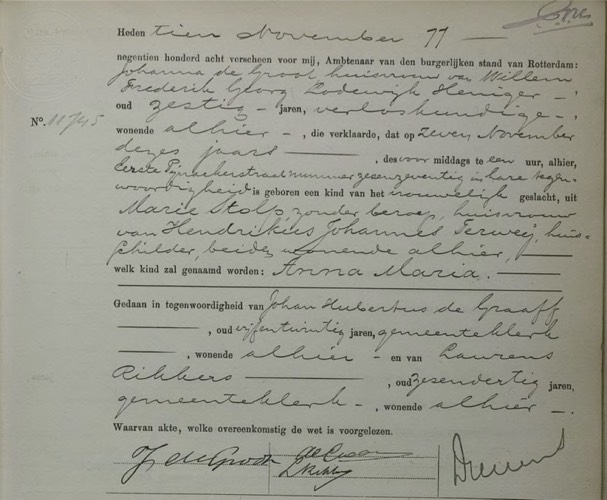 Heden tien November
negentien honderd acht verscheen voor mij, Ambtenaar van den burgerlijken stand van Rotterdam:
Johanna de Groot huisvrouw van Willem
Frederik Georg Lodewijk Heniger -
oud zestig - jaren, verloskundige -,
No. 11745
wonende alhier -, die verklaarde, dat op zeven November
dezes jaars, des voor middags te een uur, alhier,
Eerste Pijnackerstraat nummer zesenzeventig in hare tegen-
woordigheid is geboren een kind van het vrouwelijk geslacht, uit
Marie Stolp zonder beroep, huisvrouw
van Hendrikus Johannes Terweij, huis-
schilder, beiden wonende alhier,
welk kind zal genaamd worden: Anna Maria. -
Gedaan in tegenwoordigheid van Johan Hubertus de Graaff
, oud vijfentwintig jaren, gemeenteklerk
, wonende alhier - en van Laurens
Rikkers, oud zesendertig jaren,
gemeenteklerk -, wonende alhier -.
Waarvan akte, welke overeenkomstig de wet is voorgelezen.
J de Groot